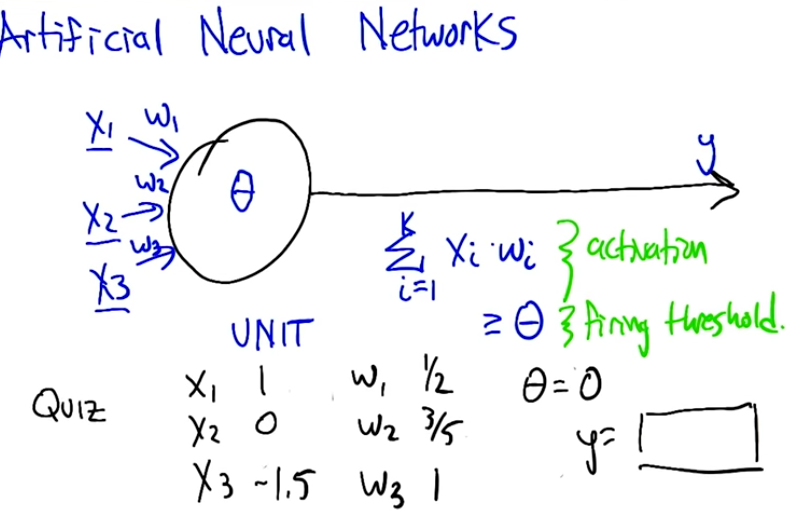 Artificial Neural Networks
X1 W1
θ
y
W2
X2
W3
X3
K
Σ Xi · Wi } activation
i=1
≥ θ } firing threshold.
UNIT
QUIZ
X1 1 W1 1/2 θ = 0
X2 0 W2 3/5 y=
X3 -1.5 W3 1